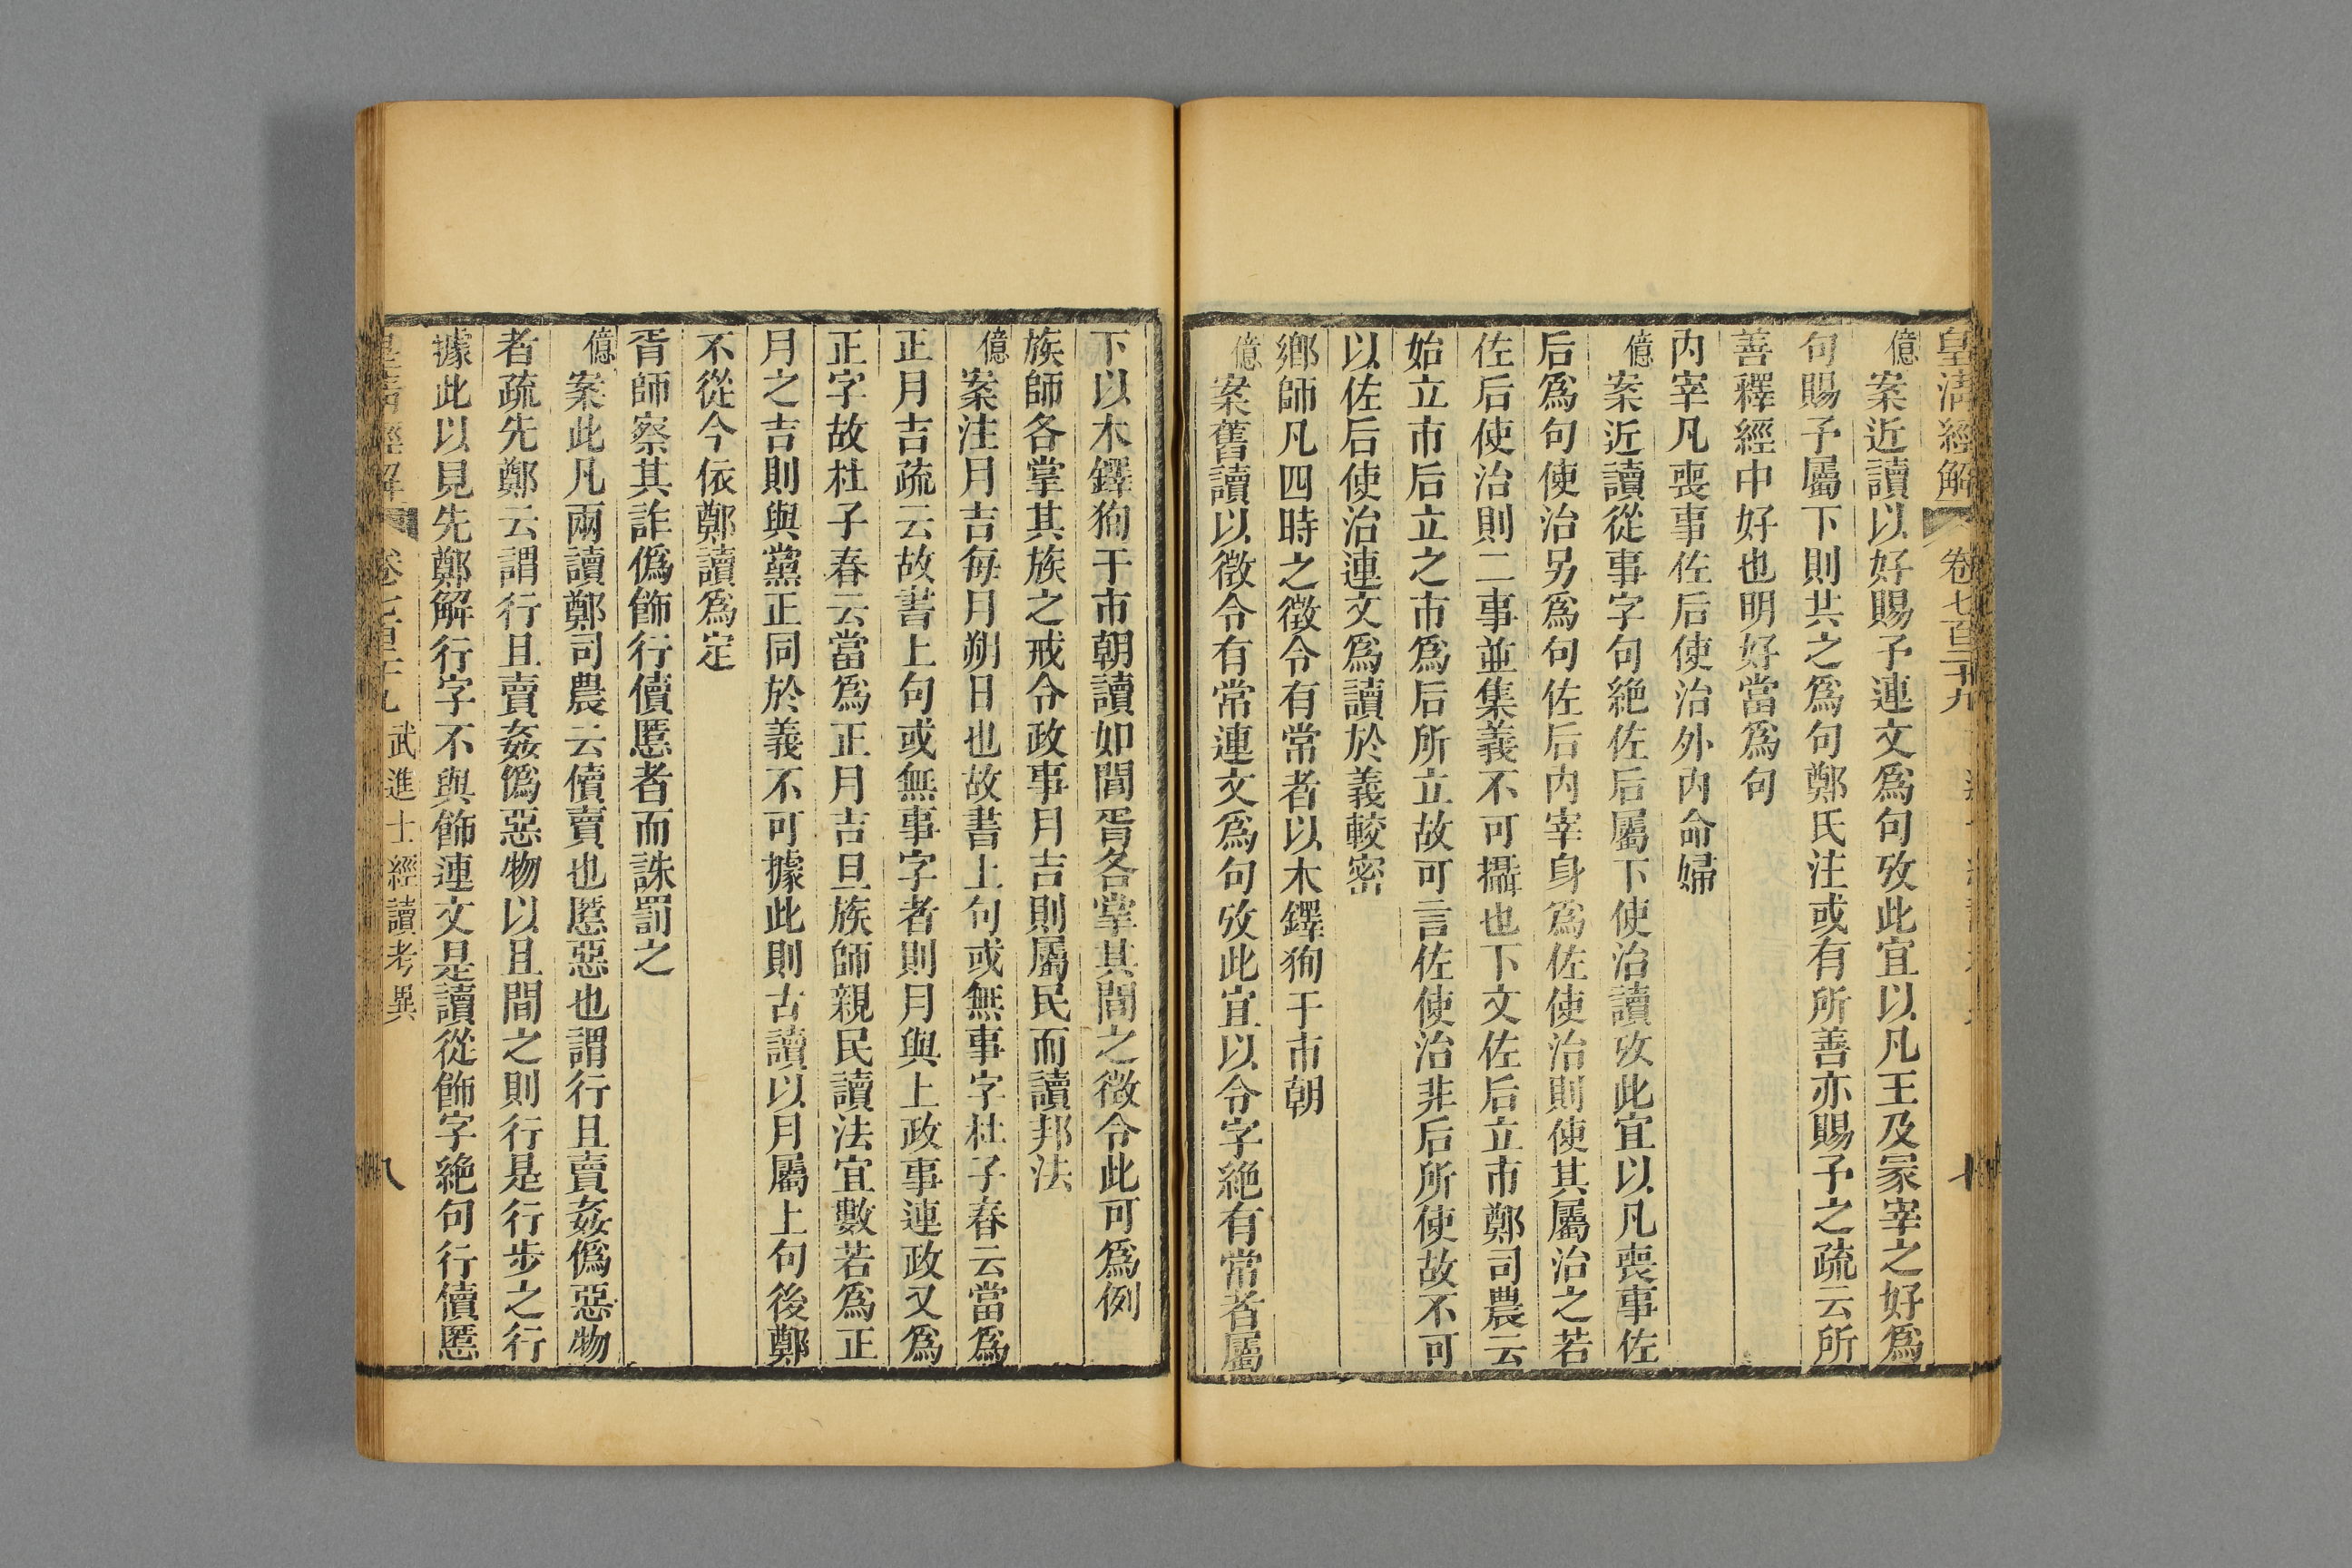 皇清經解 卷七百二十九
億案近讀以好賜予連文爲句攷此宜以凡王及冡宰之好爲
句賜予屬下則共之爲句鄭氏注或有所善亦賜予之疏云所
善釋經中好也明好當爲句
内宰凡喪事佐后使治外内命婦
億案近讀從事字句絶佐后屬下使治讀攷此宜以凡喪事佐
后爲句使治另爲句佐后内宰身爲佐使治則使其屬治之若
佐后使治則二事並集義不可攝也下文佐后立市鄭司農云
始立市后立之市爲后所立故可言佐使治非后所使故不可
以佐后使治連文爲讀於義較密
鄉師凡四時之徵令有常者以木鐸狥于市朝
億案舊讀以徵令有常連文爲句攷此宜以令字絶有常者屬
下以木鐸狥于市朝讀如閭胥各掌其閭之徵令此可爲例
族師各掌其族之戒令政事月吉則屬民而讀邦法
億案注月吉每月朔日也故書上句或無事字杜子春云當爲
正月吉疏云故書上句或無事字者則月與上政事連政又爲
正字故杜子春云當爲正月吉旦族師親民讀法宜數若爲正
月之吉則與黨正同於義不可據此則古讀以月屬上句後鄭
不從今依鄭讀爲定
胥師察其詐僞飾行儥慝者而誅罰之
億案此凡兩讀鄭司農云儥賣也慝惡也謂行且賣姦僞惡物
者疏先鄭云謂行且賣姦僞惡物以且間之則行是行步之行
據此以見先鄭解行字不與飾連文是讀從飾字絶句行儥慝
皇清經解 卷七百二十九 武進士經讀考異 八